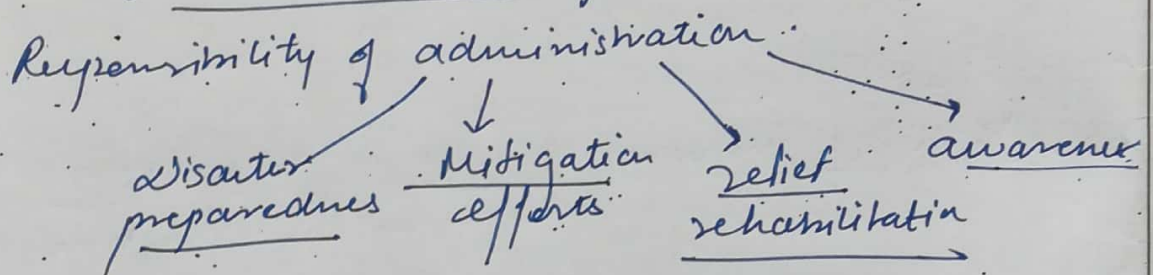 Responsibility of administration
Disaster
preparednes
Mitigation
efforts
relief
rehabilitatin
awareness